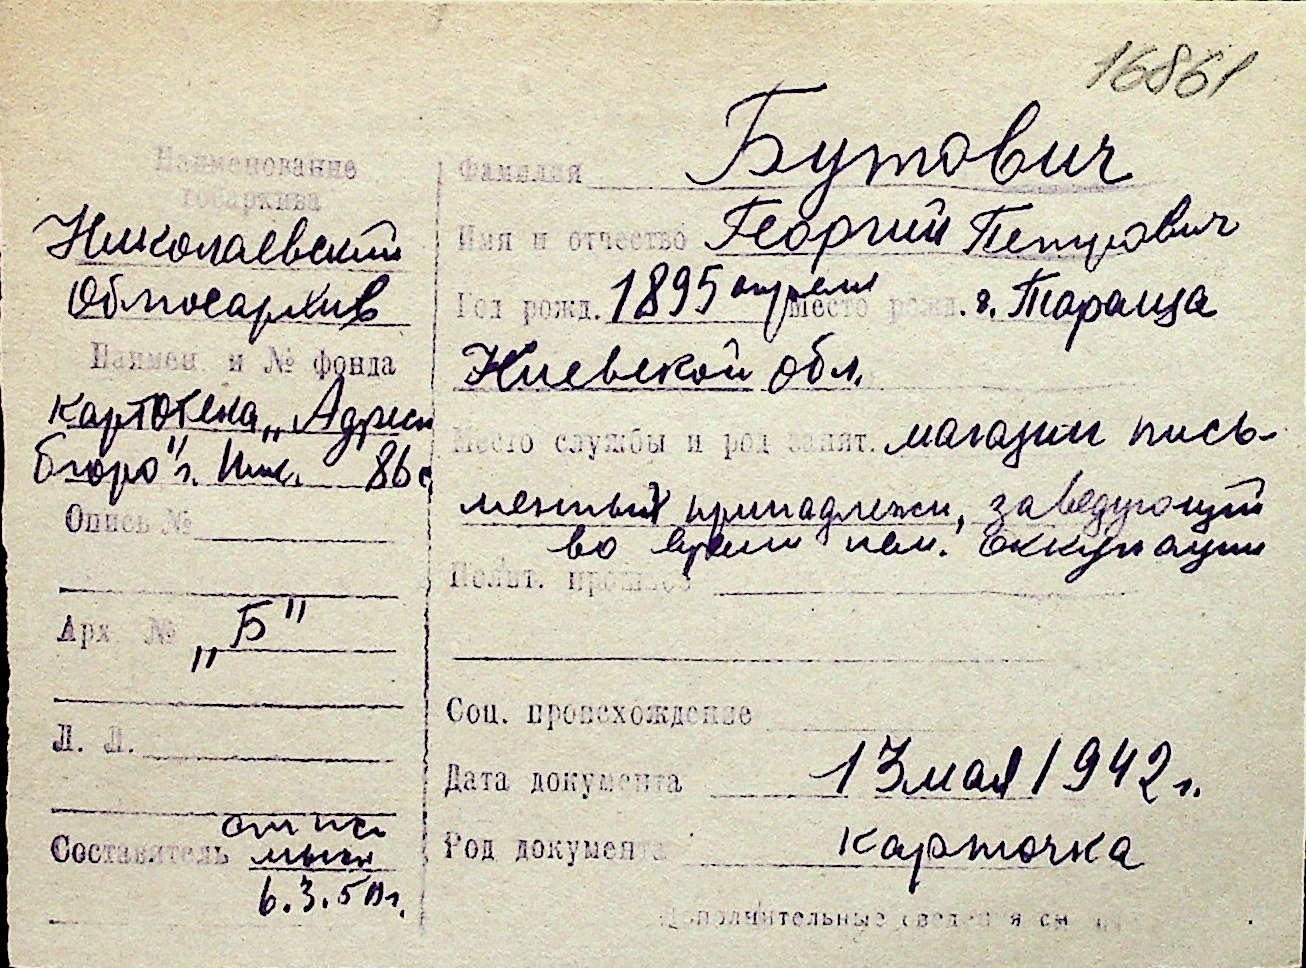 16861
Наименование
госархива
Николаевский
Облгосархив
Наимен. и № фонда
картотека „Адресн
бюро" г. Ник. 86с
Опись №
Арх. № „Б"
Л. Л.
Составитель
6.3.50г.
Фамилия Бутович
Имя и отчество Георгий Петрович
Год рожд. 1895 апреля Место рожд. г. Тараща
Киевской обл.
Место службы и род занят. магазин пись-
менных принадлежн, заведующий
во время нем. оккупации
Полит. прошлое
Соц. происхождение
Дата документа 13 мая 1942 г.
Род документа карточка
Дополнительные сведения см